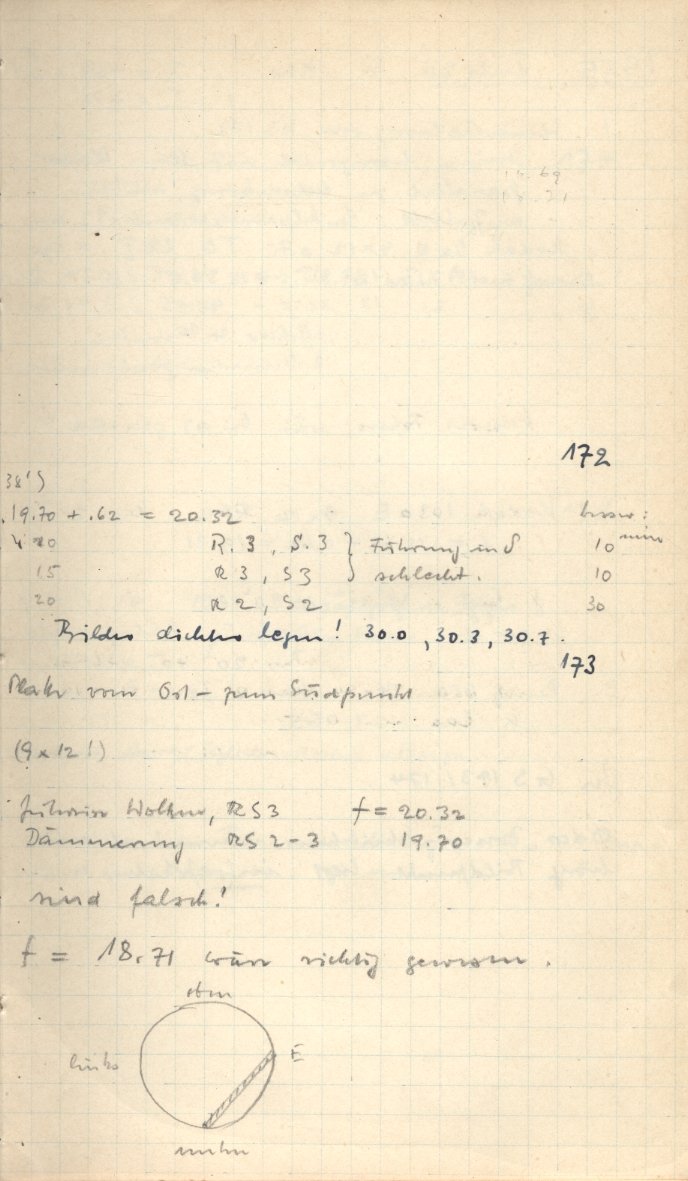 172
38')
19.70 + .62 = 20.32 besser:
10 R.3, S.3 } Führung in δ 10 min
15 R3, S3 } schlecht. 10
20 R2, S2 30
Bilder dichter legen! 30.0, 30.3, 30.7.
173
Platte vom Ost- zum Südpunkt
(9 x 12!)
Wolken, RS3 f = 20.32
Dämmerung RS 2-3 19.70
sind falsch!
f = 18.71 wäre richtig gewesen.
oben
links E
unten